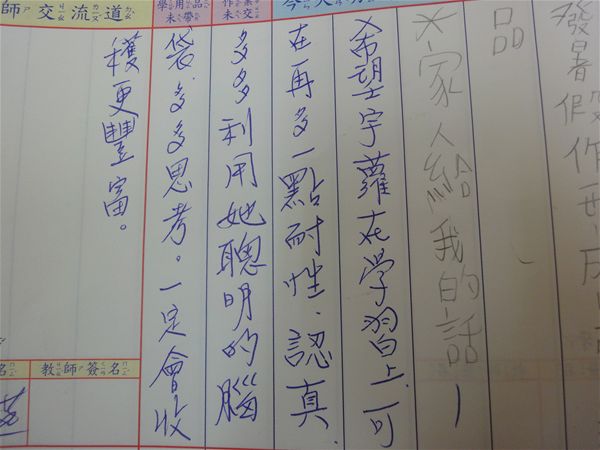 發暑假作
品
大家人給我的話
希望宇蘿在學習上,可
在再多一點耐性、認真
多多利用她聰明的腦
袋,多多思考。一定會收
穫更豐富。
師交流道
學用品未帶
教師簽名